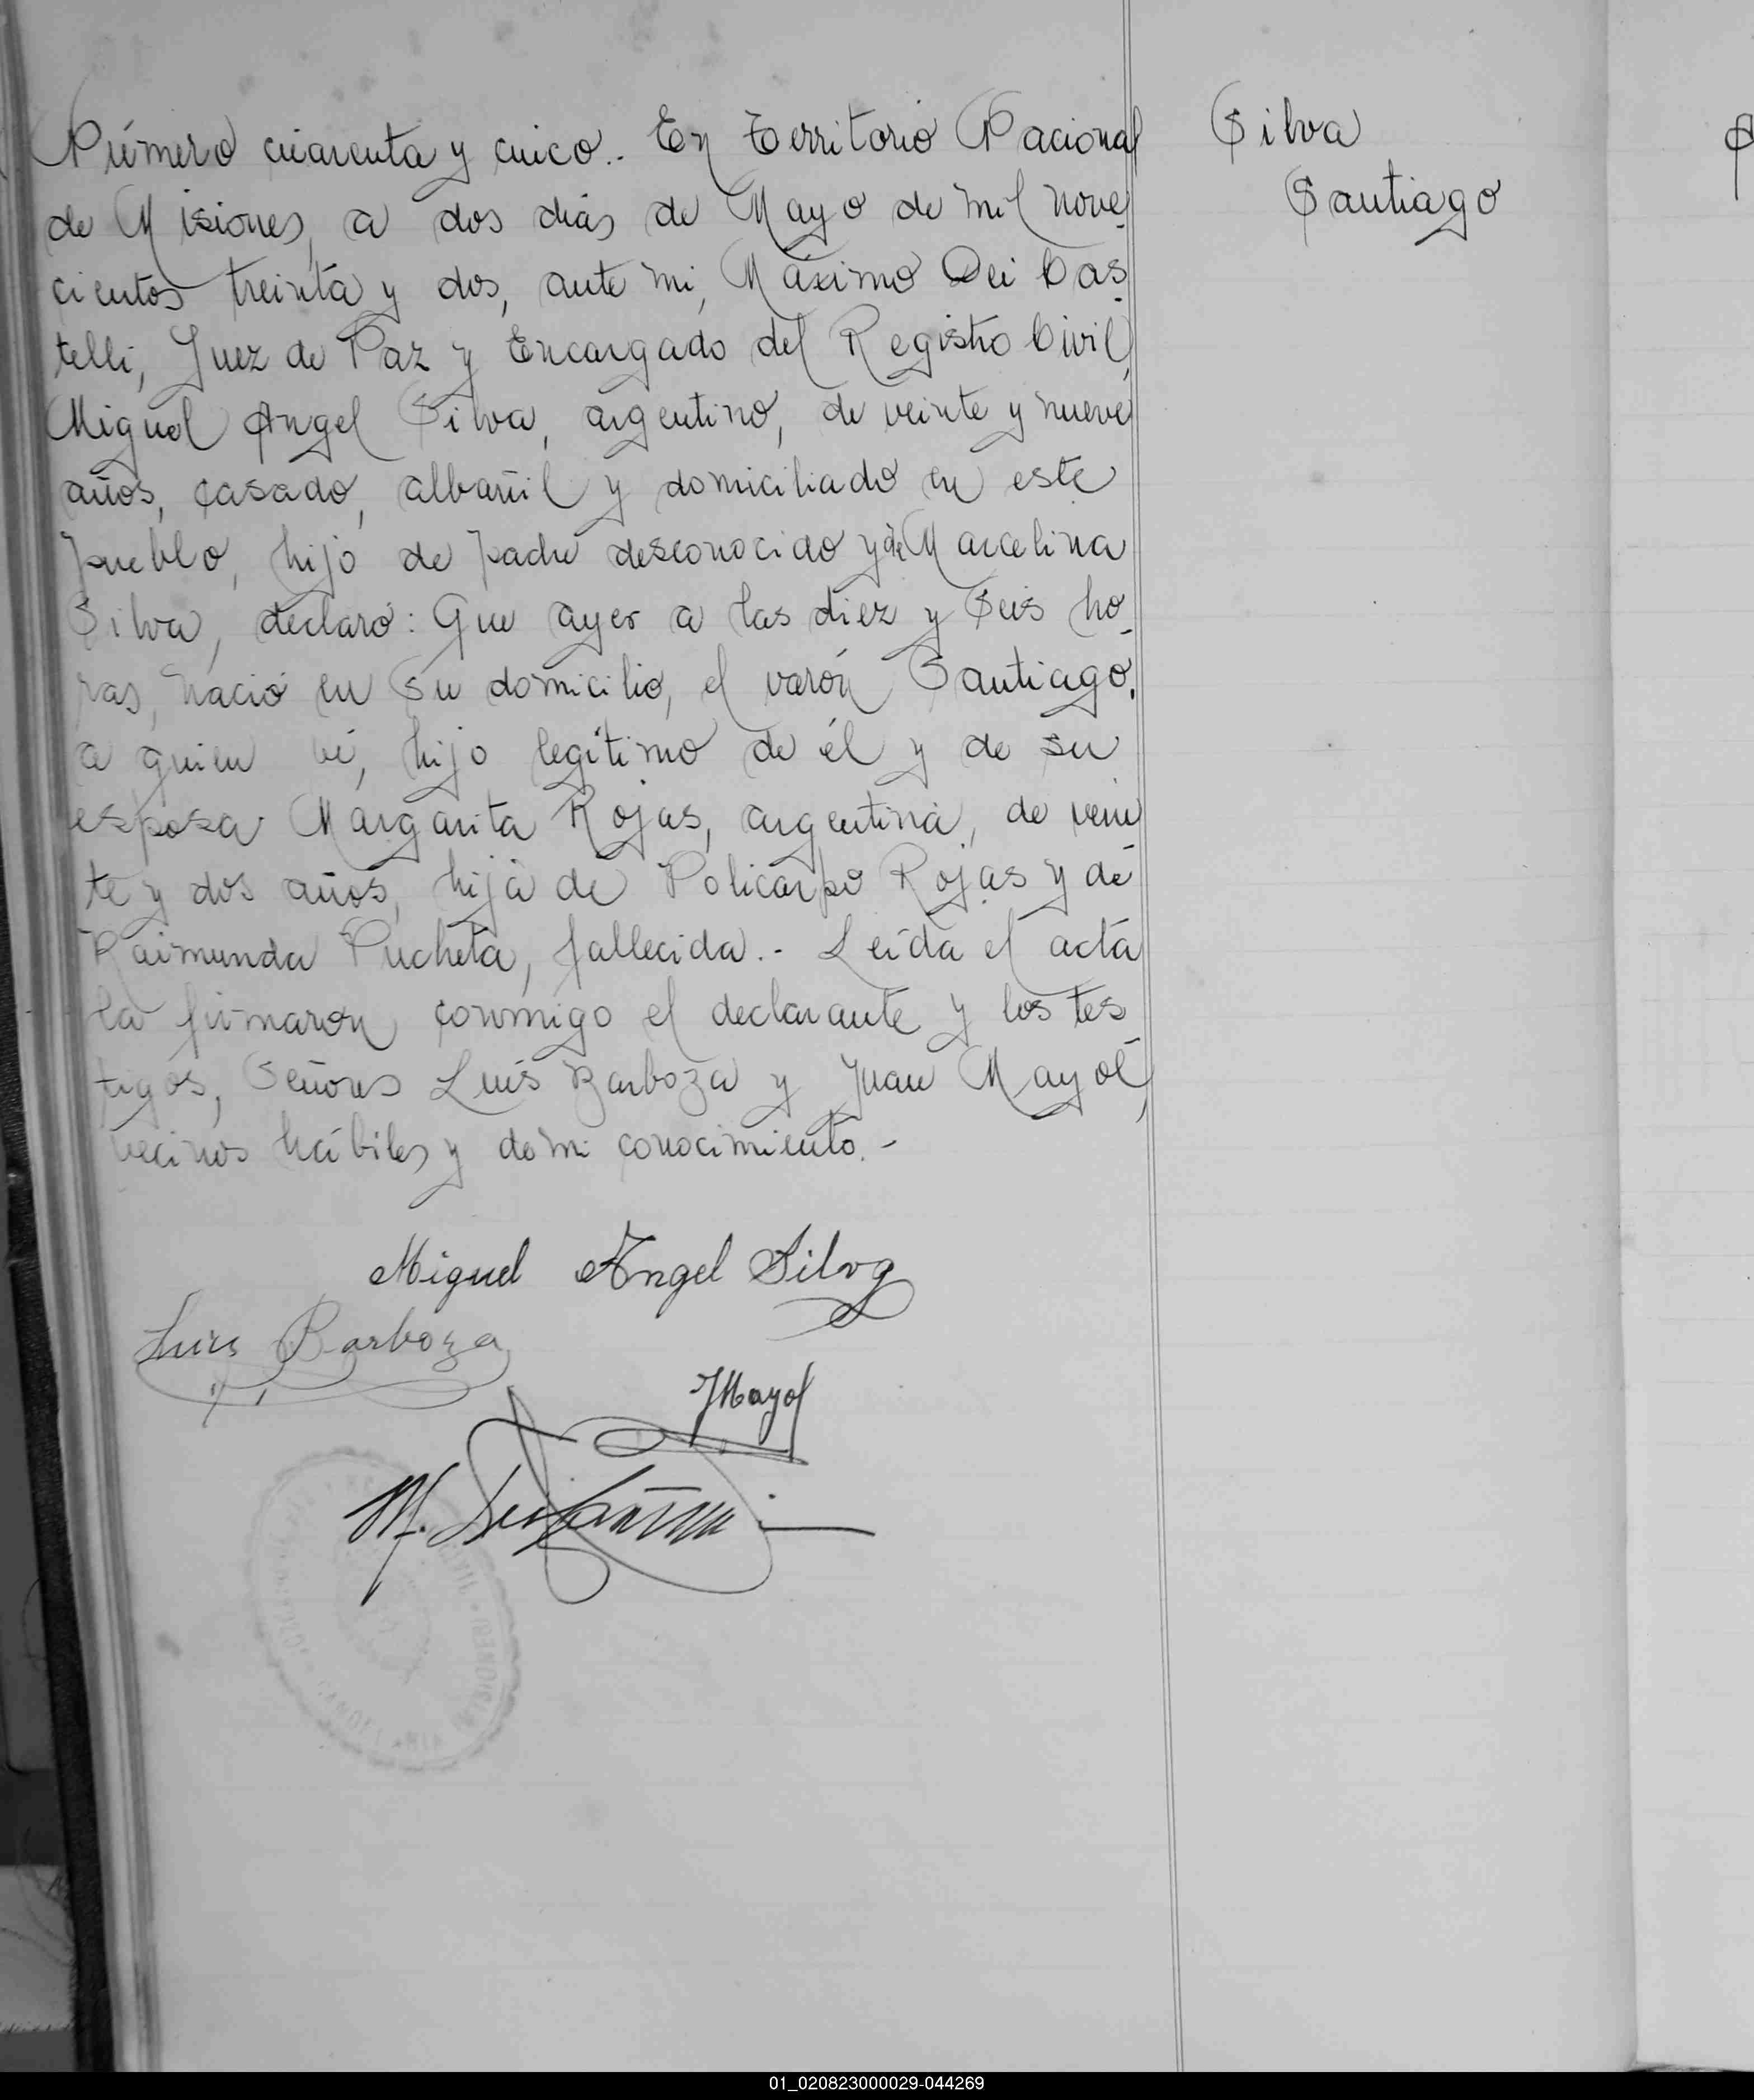 Número cuarenta y cinco.. En Territorio Nacional
de Misiones, a dos dias de Mayo de mil nove-
cientos treinta y dos, ante mi, Máximo Dei Cas-
telli, Juez de Paz y Encargado del Registro Civil,
Miguel Angel Silva, argentino, de veinte y nueve
años, casado, albañil y domiciliado en este
pueblo, hijo de padre desconocido y de Marcelina
Silva, declaró: Que ayer a las diez y seis ho-
ras, nació en su domicilio, el varón Santiago,
a quien ví, hijo legítimo de él y de su
esposa Margarita Rojas, argentina, de vein
te y dos años, hija de Policarpo Rojas y de
Raimunda Pucheta, fallecida.- Leída el acta
la firmaron conmigo el declarante y los tes
tigos, Señores Luis Barboza y Juan Mayol,
vecinos hábiles y de mi conocimiento.-
Miguel Angel Silva
Luis Barboza
JMayol
M. Dei Castelli
Silva
Santiago
01_020823000029-044269